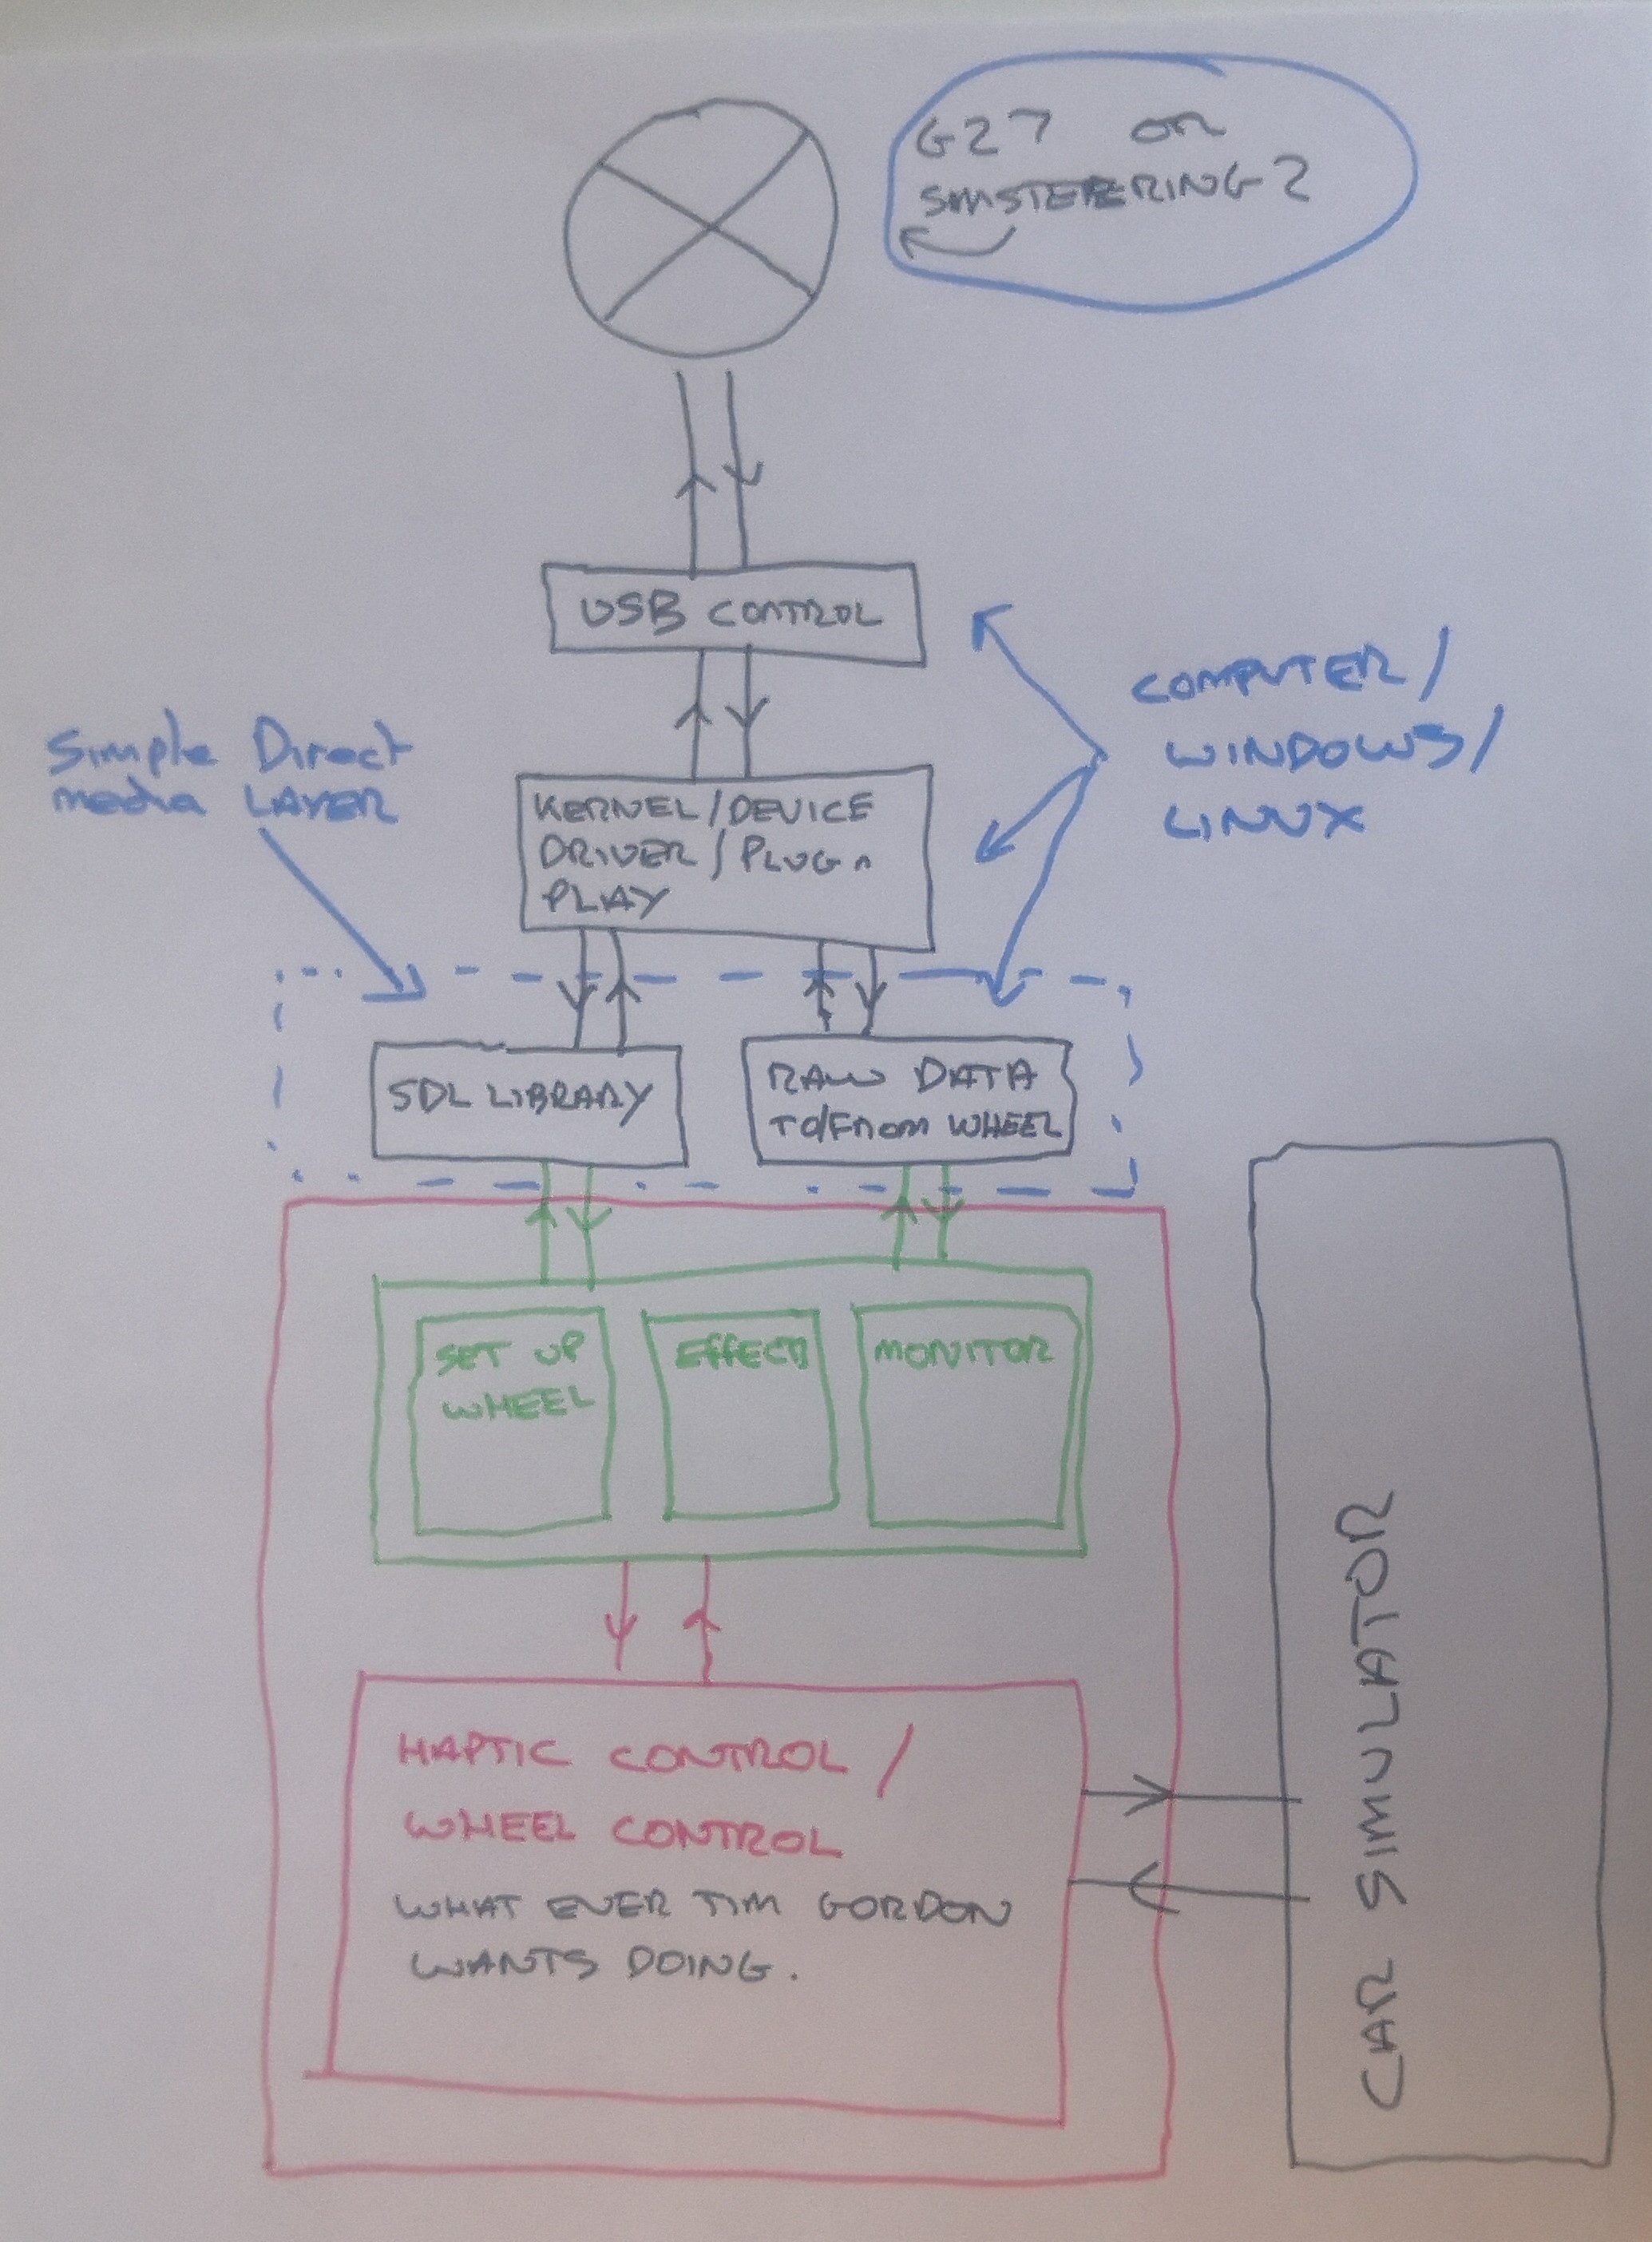 G27 OR
SIMSTEERING2
USB CONTROL
COMPUTER/
WINDOWS/
LINUX
Simple Direct
media LAYER
KERNEL/DEVICE
DRIVER/PLUG n
PLAY
SDL LIBRARY
RAW DATA
TO/FROM WHEEL
SET UP
WHEEL
EFFECTS
MONITOR
HAPTIC CONTROL /
WHEEL CONTROL
WHAT EVER TIM GORDON
WANTS DOING.
CAR SIMULATOR